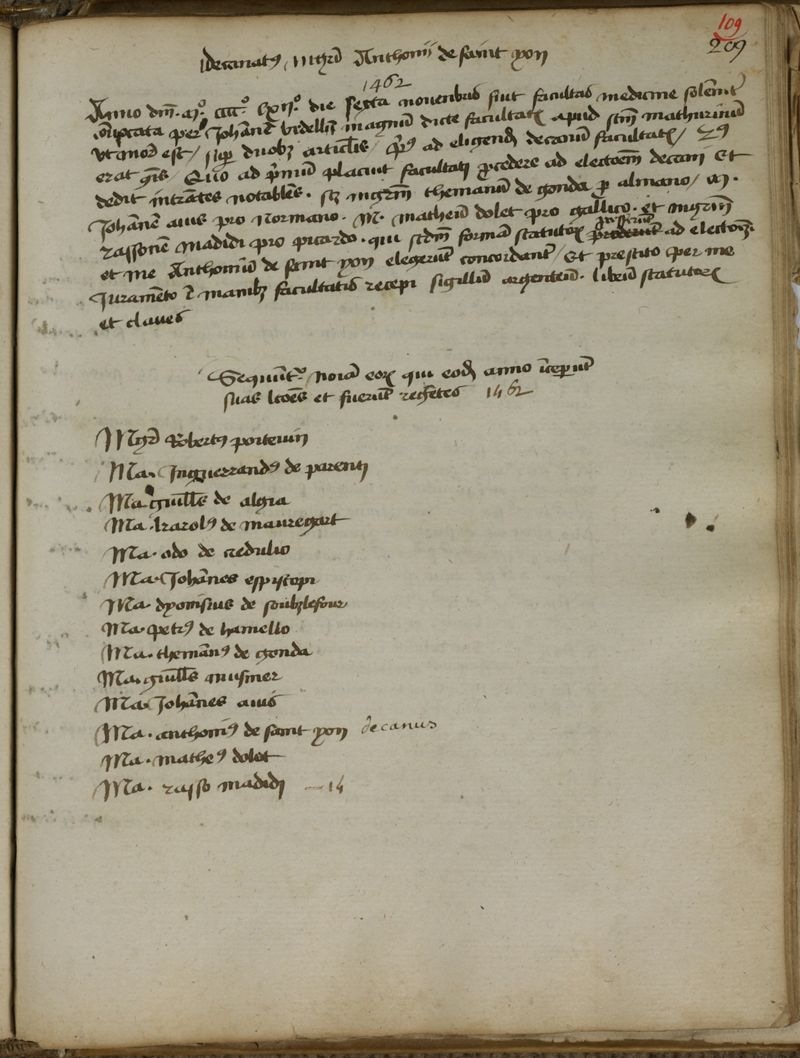 109
209
decanatus Mgri Anthonii de saint yon
1462
Anno dni. Mo. cccco. lxiio. die sexta novenbris fuit facultas medicine solenit
per Johane magnu dicte facultatis apud sctm mathurinu
ut moris est / sup duobz articlis / pus ad eligend decanu facultatis /
erat gnlis / Quo ad primu placuit facultati procedere ad electoem decani Et
dedit intrates notables. sz mgrm themanu de gonda pro almano / M.
Johane avis pro Normano. M. matheu dolet pro gallico. et mgrm
rassone madidi pro picardo. qui scdm forma statutor processerut ad electoe.
et me Anthoniu de saint yon elegerut concordant / Et prestito per me
Juramento i manibz facultatis recepi sigillu argenteu. libru statutor
et claves
Sequunt noia eor qui eod anno iceperut
suas lcoes et fuerut regetes 1462
Mgr Robertus potevin
Ma. Inguerrandus de parenti
Ma guills de algia
Ma. karolus de mauregart
Ma. odo de credulio
Ma. Johanes episcopi
Ma. dyonisius de soubzlefour
Ma. petrus de hamello
Ma. themanus de gonda
Ma. guills musnier
Ma. Johanes avis
Ma. anthonius de saint yon decanus
Ma. matheus dolet
Ma. rasso madidi — 14